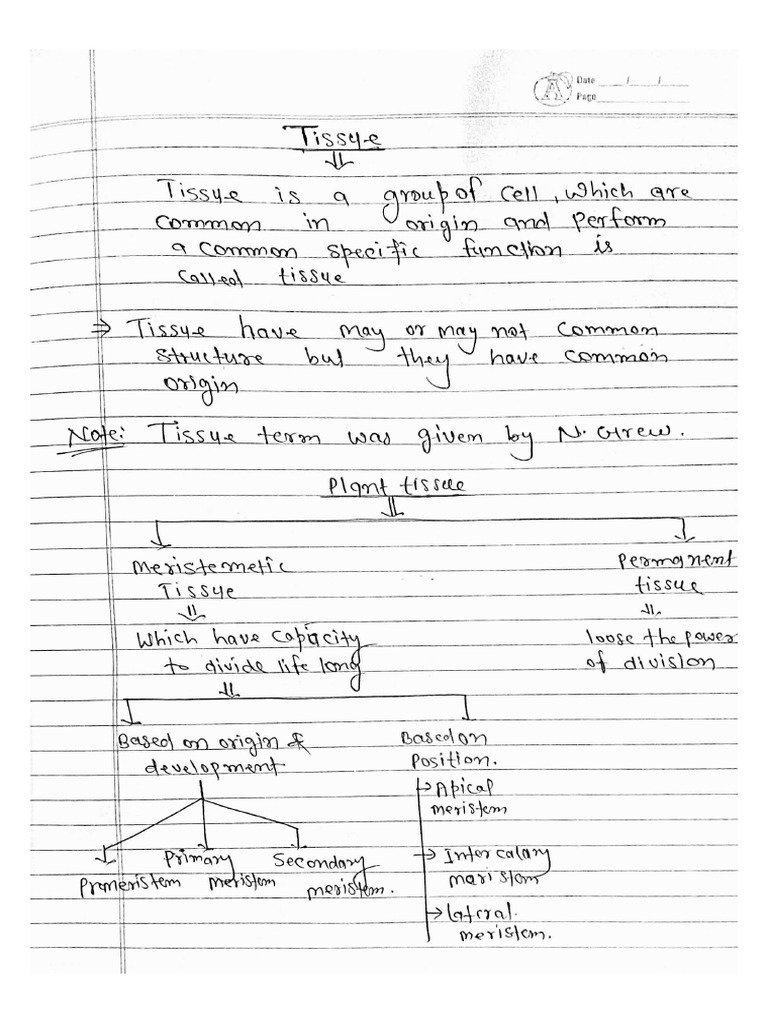 Date ___/___/___
Page
Tissue
Tissue is a group of cell, which are
common in origin and perform
a common specific function is
called tissue
⇒ Tissue have may or may not common
structure but they have common
origin
Note: Tissue term was given by N. Grew.
Plant tissue
Meristemetic
Tissue
Permanent
tissue
Which have capacity
to divide life long
loose the power
of division
Based on origin &
development
Based on
Position.
→ Apical
meristem
Promeristem
Primary
meristem
Secondary
meristem.
→ Intercalary
maristom
→ lateral
meristem.